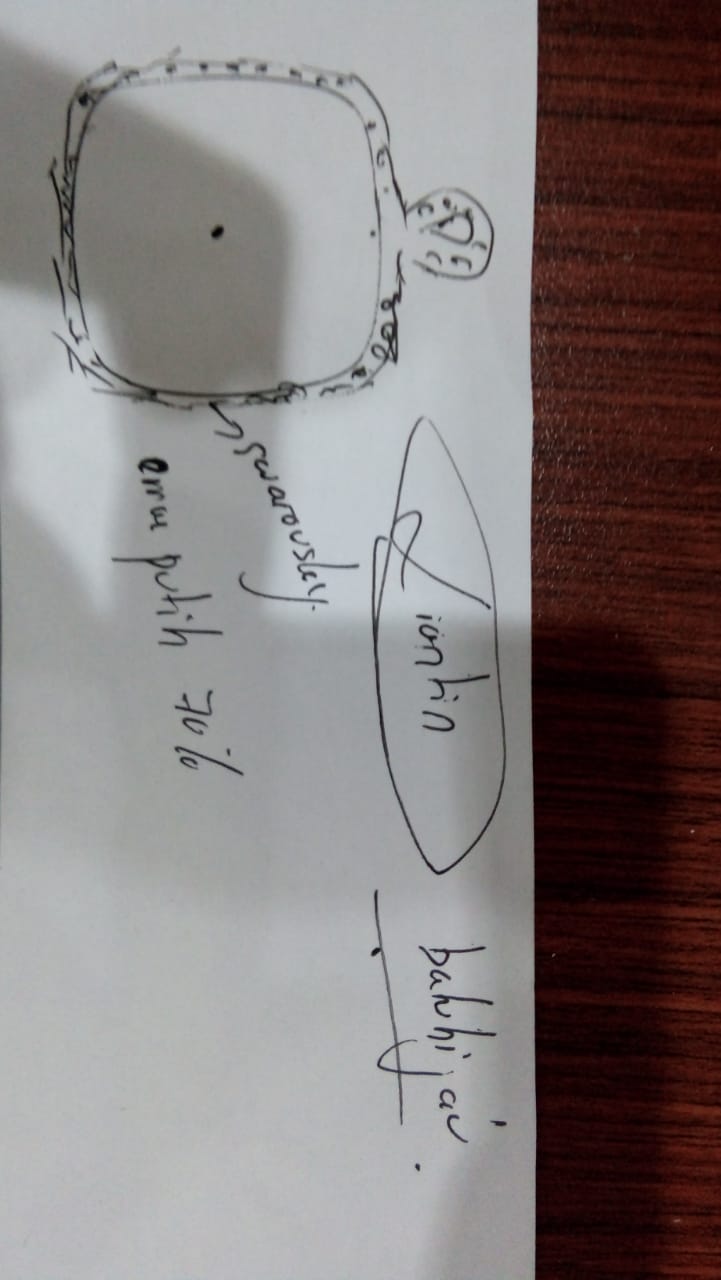 Liontin batu hijau.
swarousky.
emas putih 70%